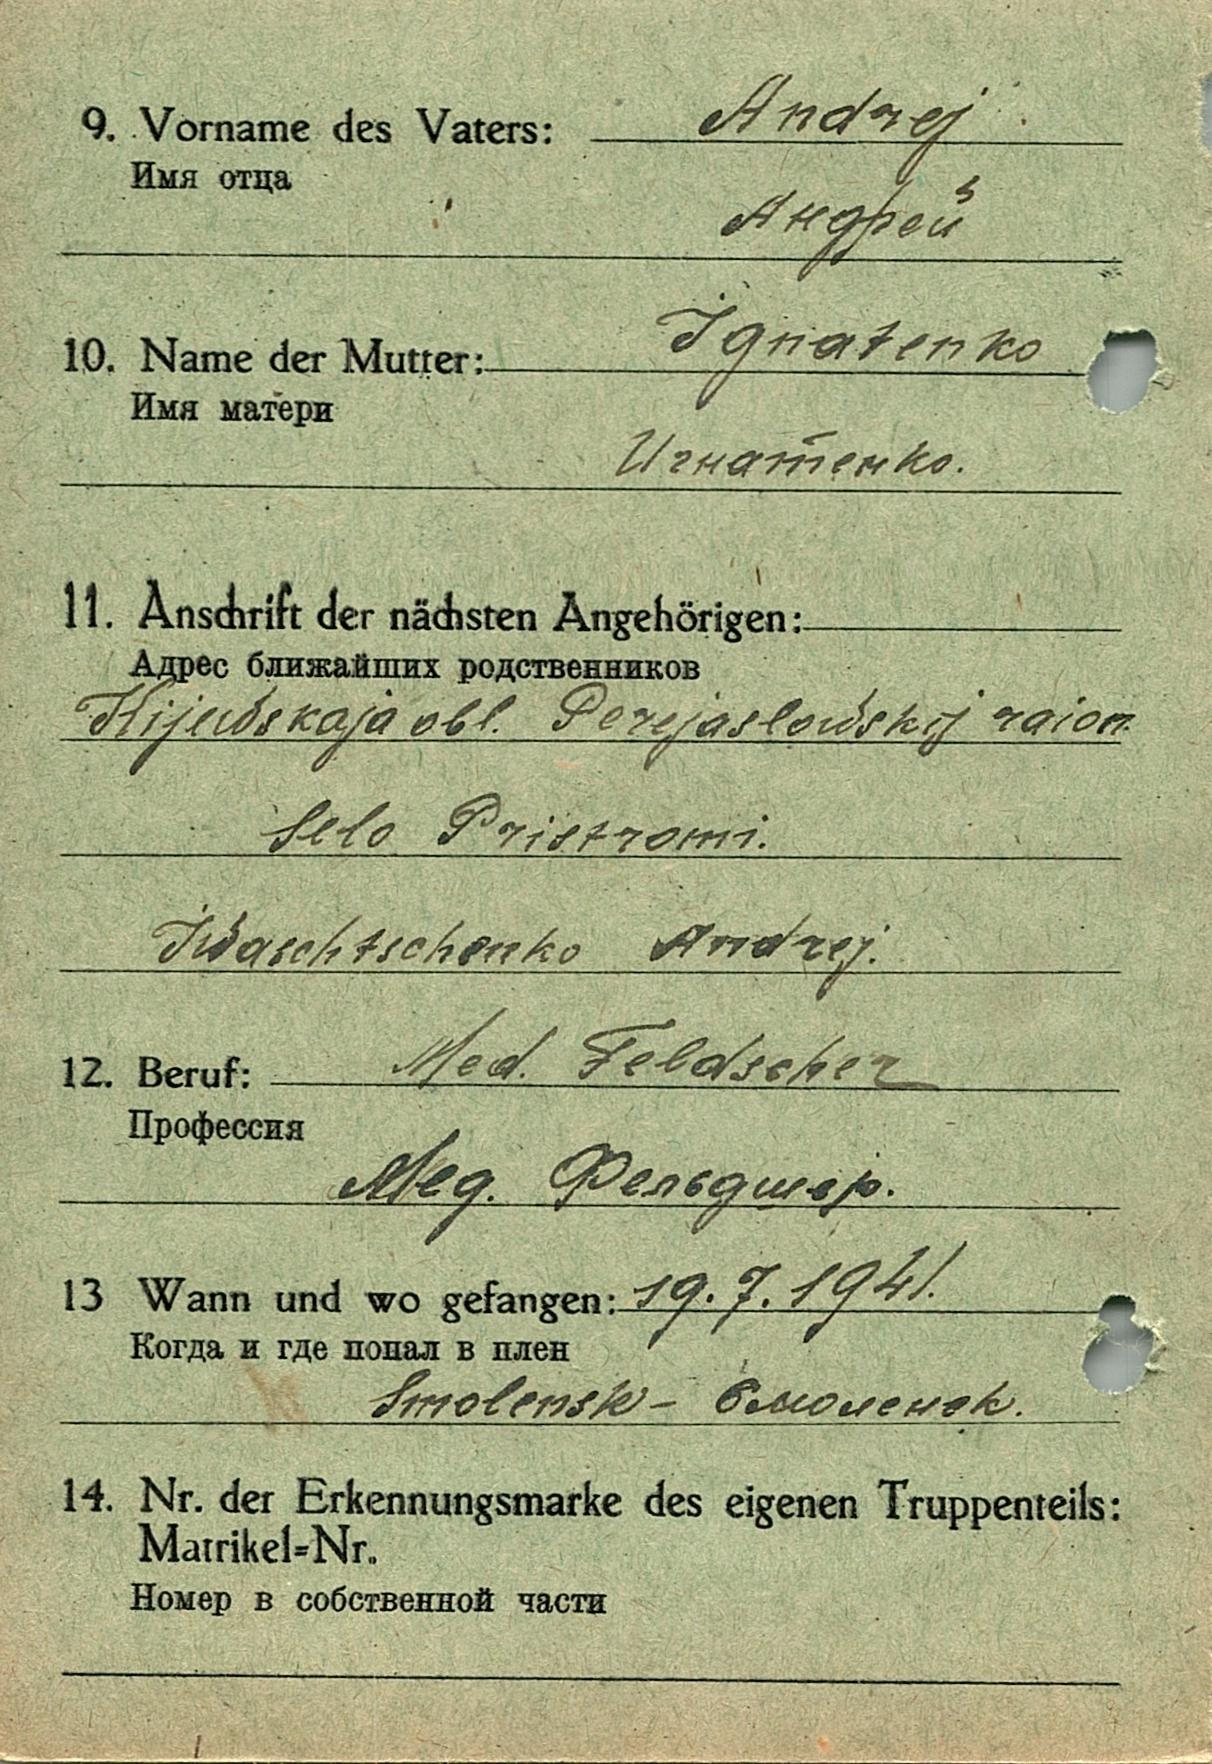 9. Vorname des Vaters: Andrej
Имя отца
Андрей
10. Name der Mutter: Ignatenko
Имя матери
Игнатенко.
11. Anschrift der nächsten Angehörigen:
Адрес ближайших родственников
Kijewskaja obl. Perejaslowskij raion.
Selo Pristromi.
Iwaschtschenko Andrej.
12. Beruf: Med. Feldscher
Профессия
Мед. Фельдшер.
13 Wann und wo gefangen: 19.7.1941.
Когда и где попал в плен
Smolensk - Смоленск.
14. Nr. der Erkennungsmarke des eigenen Truppenteils:
Matrikel=Nr.
Номер в собственной части